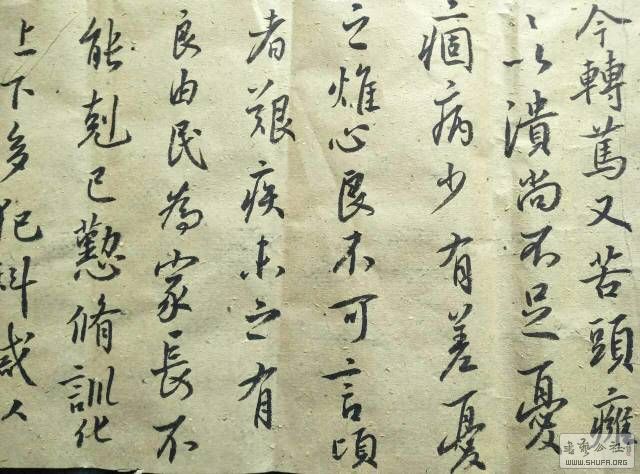 今轉篤又苦頭癰
以潰尚不足憂
痼病少有差憂
之燋心良不可言頃
者艱疾未之有
良由民為家長不
能剋己懃脩訓化
上下多犯科誡以
书艺公社
WWW.SHUFA.ORG